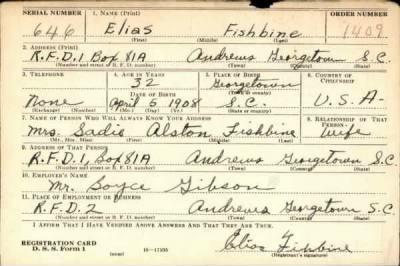 SERIAL NUMBER 1. NAME (Print) ORDER NUMBER
646 Elias Fishbine 1409
(First) (Middle) (Last)
2. ADDRESS (Print)
R.F.D.1 Box 81A Andrews Georgetown S.C.
(Number and street or R. F. D. number) (Town) (County) (State)
3. TELEPHONE 4. AGE IN YEARS 5. PLACE OF BIRTH 6. COUNTRY OF CITIZENSHIP
32 Georgetown
DATE OF BIRTH (Town or county)
None April 5 1908 S.C. U.S.A.
(Exchange) (Number) (Mo.) (Day) (Yr.) (State or country)
7. NAME OF PERSON WHO WILL ALWAYS KNOW YOUR ADDRESS 8. RELATIONSHIP OF THAT PERSON
Mrs. Sadie Alston Fishbine Wife
(Mr., Mrs., Miss) (First) (Middle) (Last)
9. ADDRESS OF THAT PERSON
R.F.D.1, Box 81A Andrews Georgetown S.C.
(Number and street or R. F. D. number) (Town) (County) (State)
10. EMPLOYER'S NAME
Mr. Boyce Gibson
11. PLACE OF EMPLOYMENT OR BUSINESS
R.F.D. 2 Andrews Georgetown S.C.
(Number and street or R. F. D. number) (Town) (County) (State)
I AFFIRM THAT I HAVE VERIFIED ABOVE ANSWERS AND THAT THEY ARE TRUE.
REGISTRATION CARD
D. S. S. Form 1 16—17105 Elias Fishbine
(Registrant's signature)